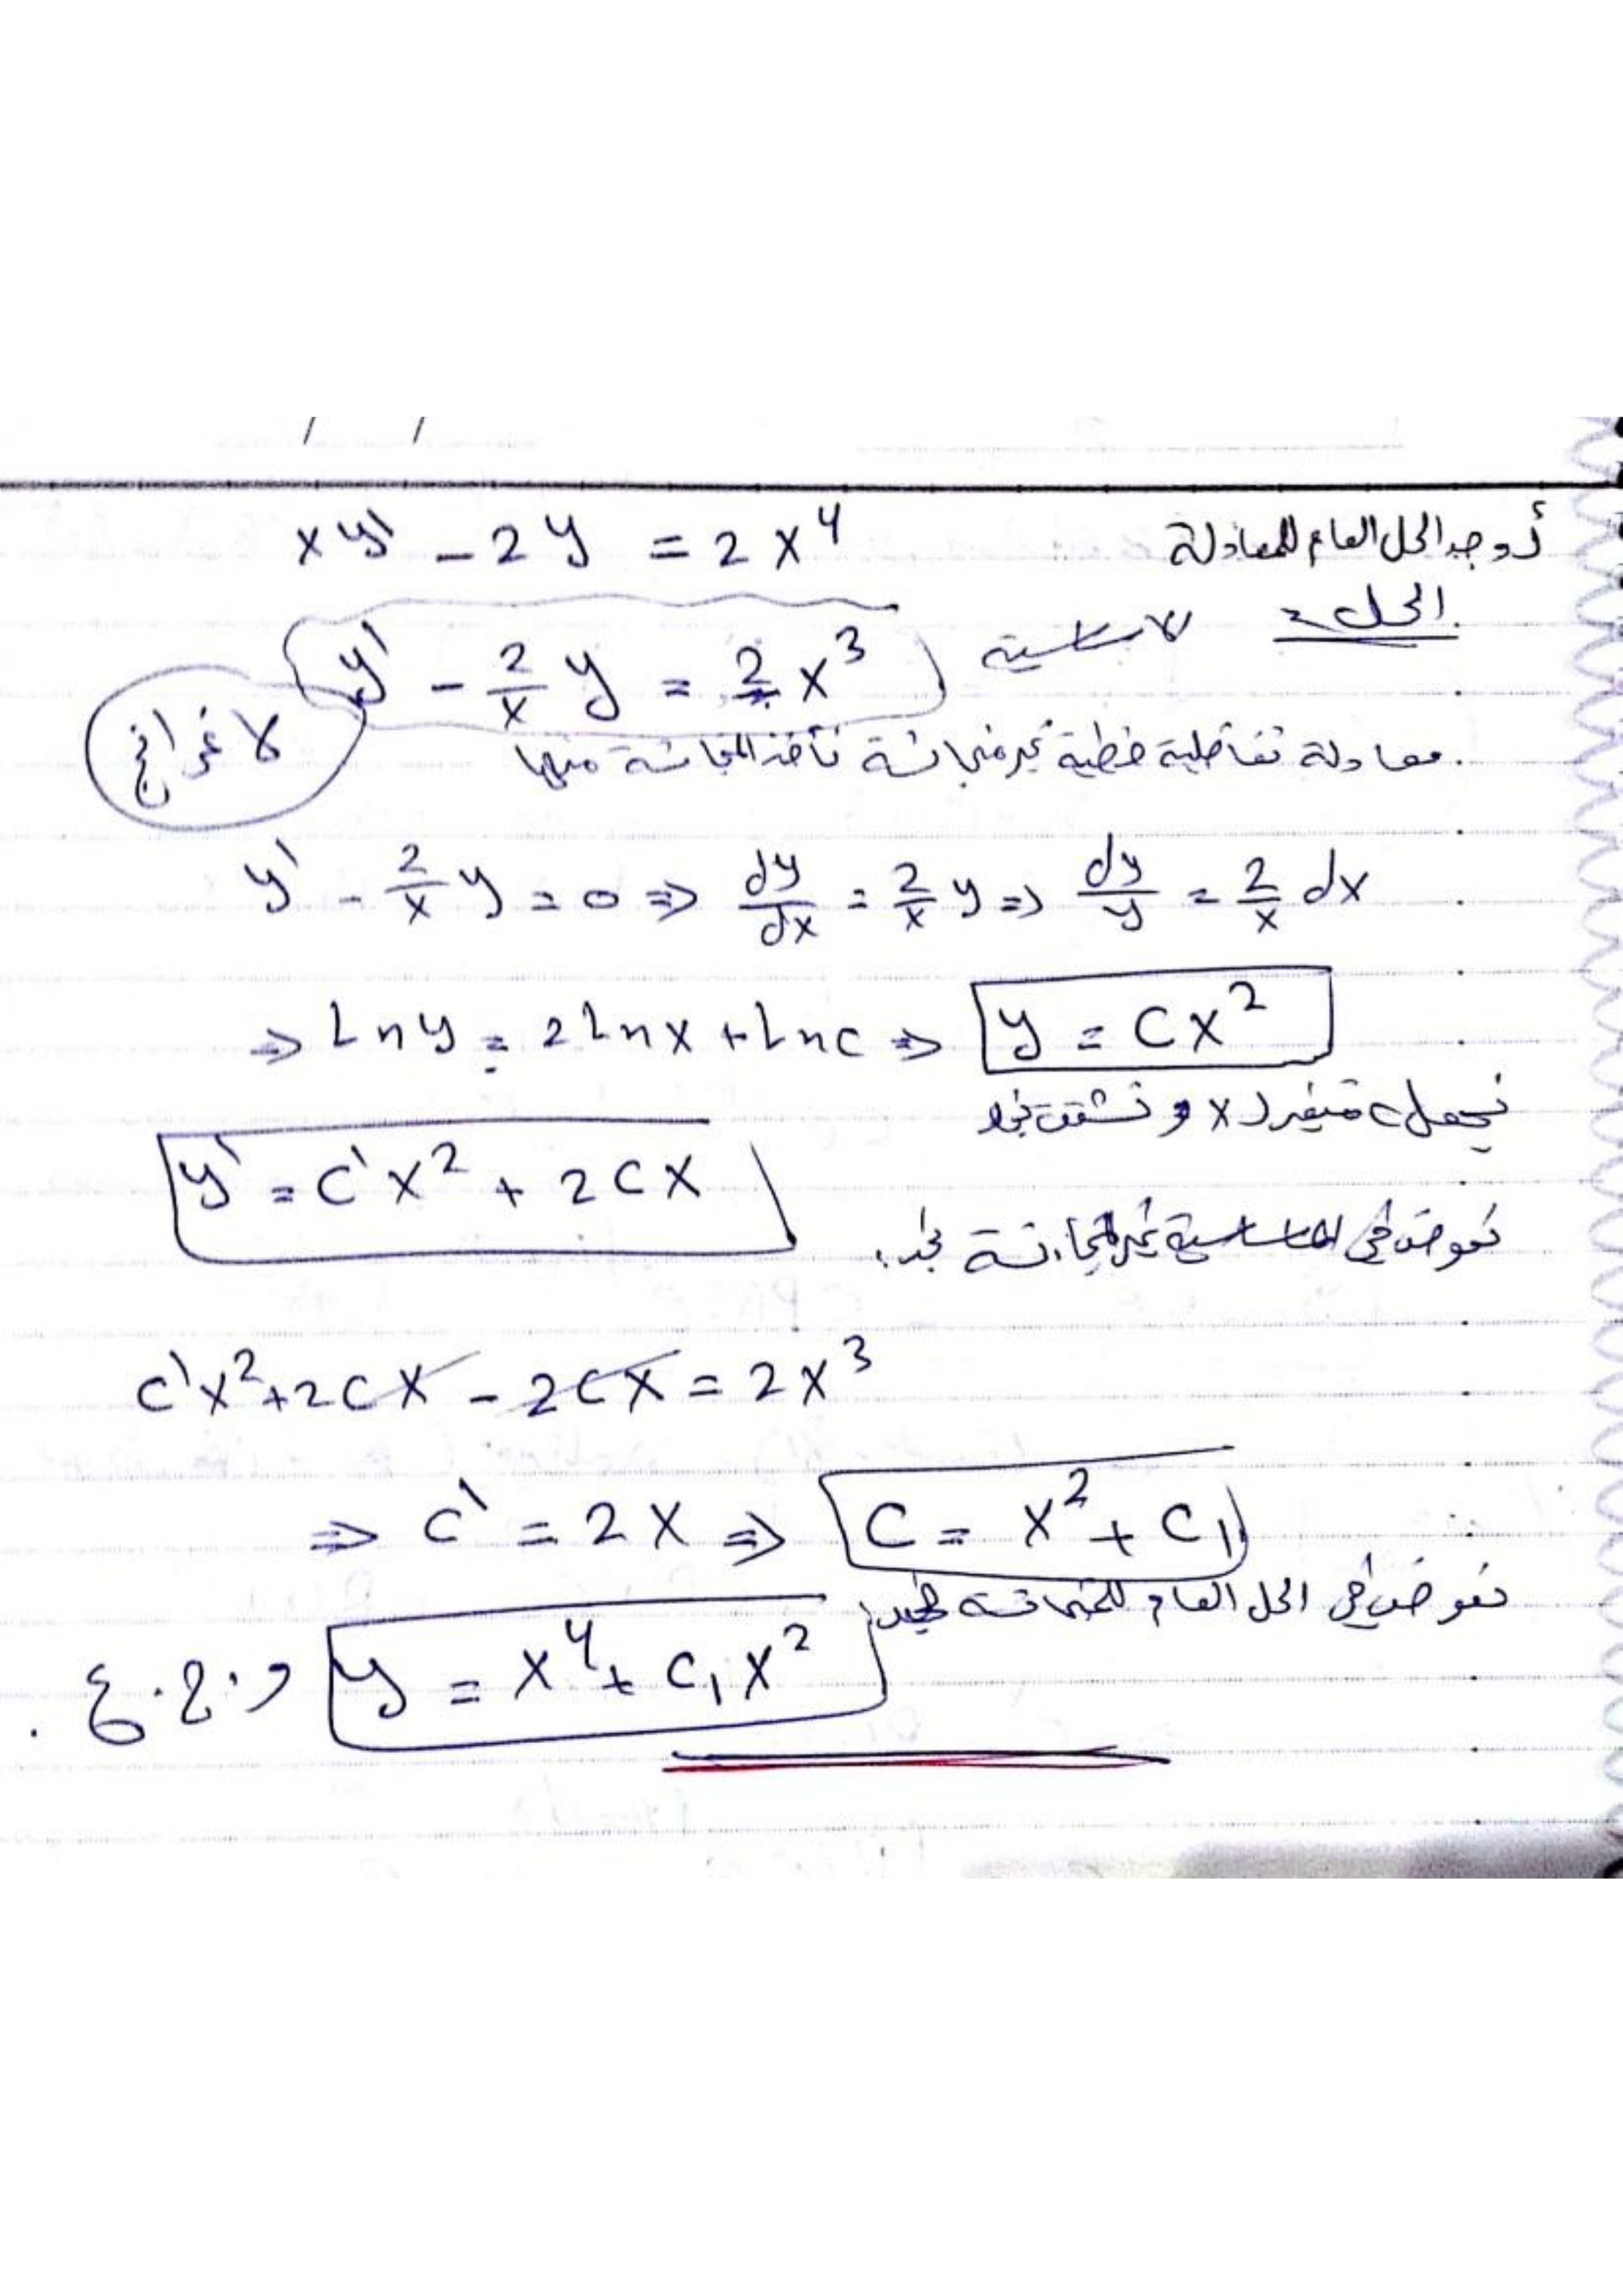 أوجد الحل العام للمعادلة xy' - 2y = 2x⁴
الحل:
الأساسية y' - 2/x y = 2x³
لاغرانج
معادلة تفاضلية خطية غير متجانسة نأخذ المتجانسة منها
y' - 2/x y = 0 ⇒ dy/dx = 2/x y ⇒ dy/y = 2/x dx
⇒ Lny = 2Lnx + Lnc ⇒ y = Cx²
نجعل c متغير لـ x و نشتق نجد
y' = c'x² + 2cx
نعوض في الأساسية غير المتجانسة نجد:
c'x² + 2cx - 2cx = 2x³
⇒ c' = 2x ⇒ C = x² + C₁
نعوض في الحل العام للمتجانسة نجد:
y = x⁴ + C₁x² و.ج.ع.